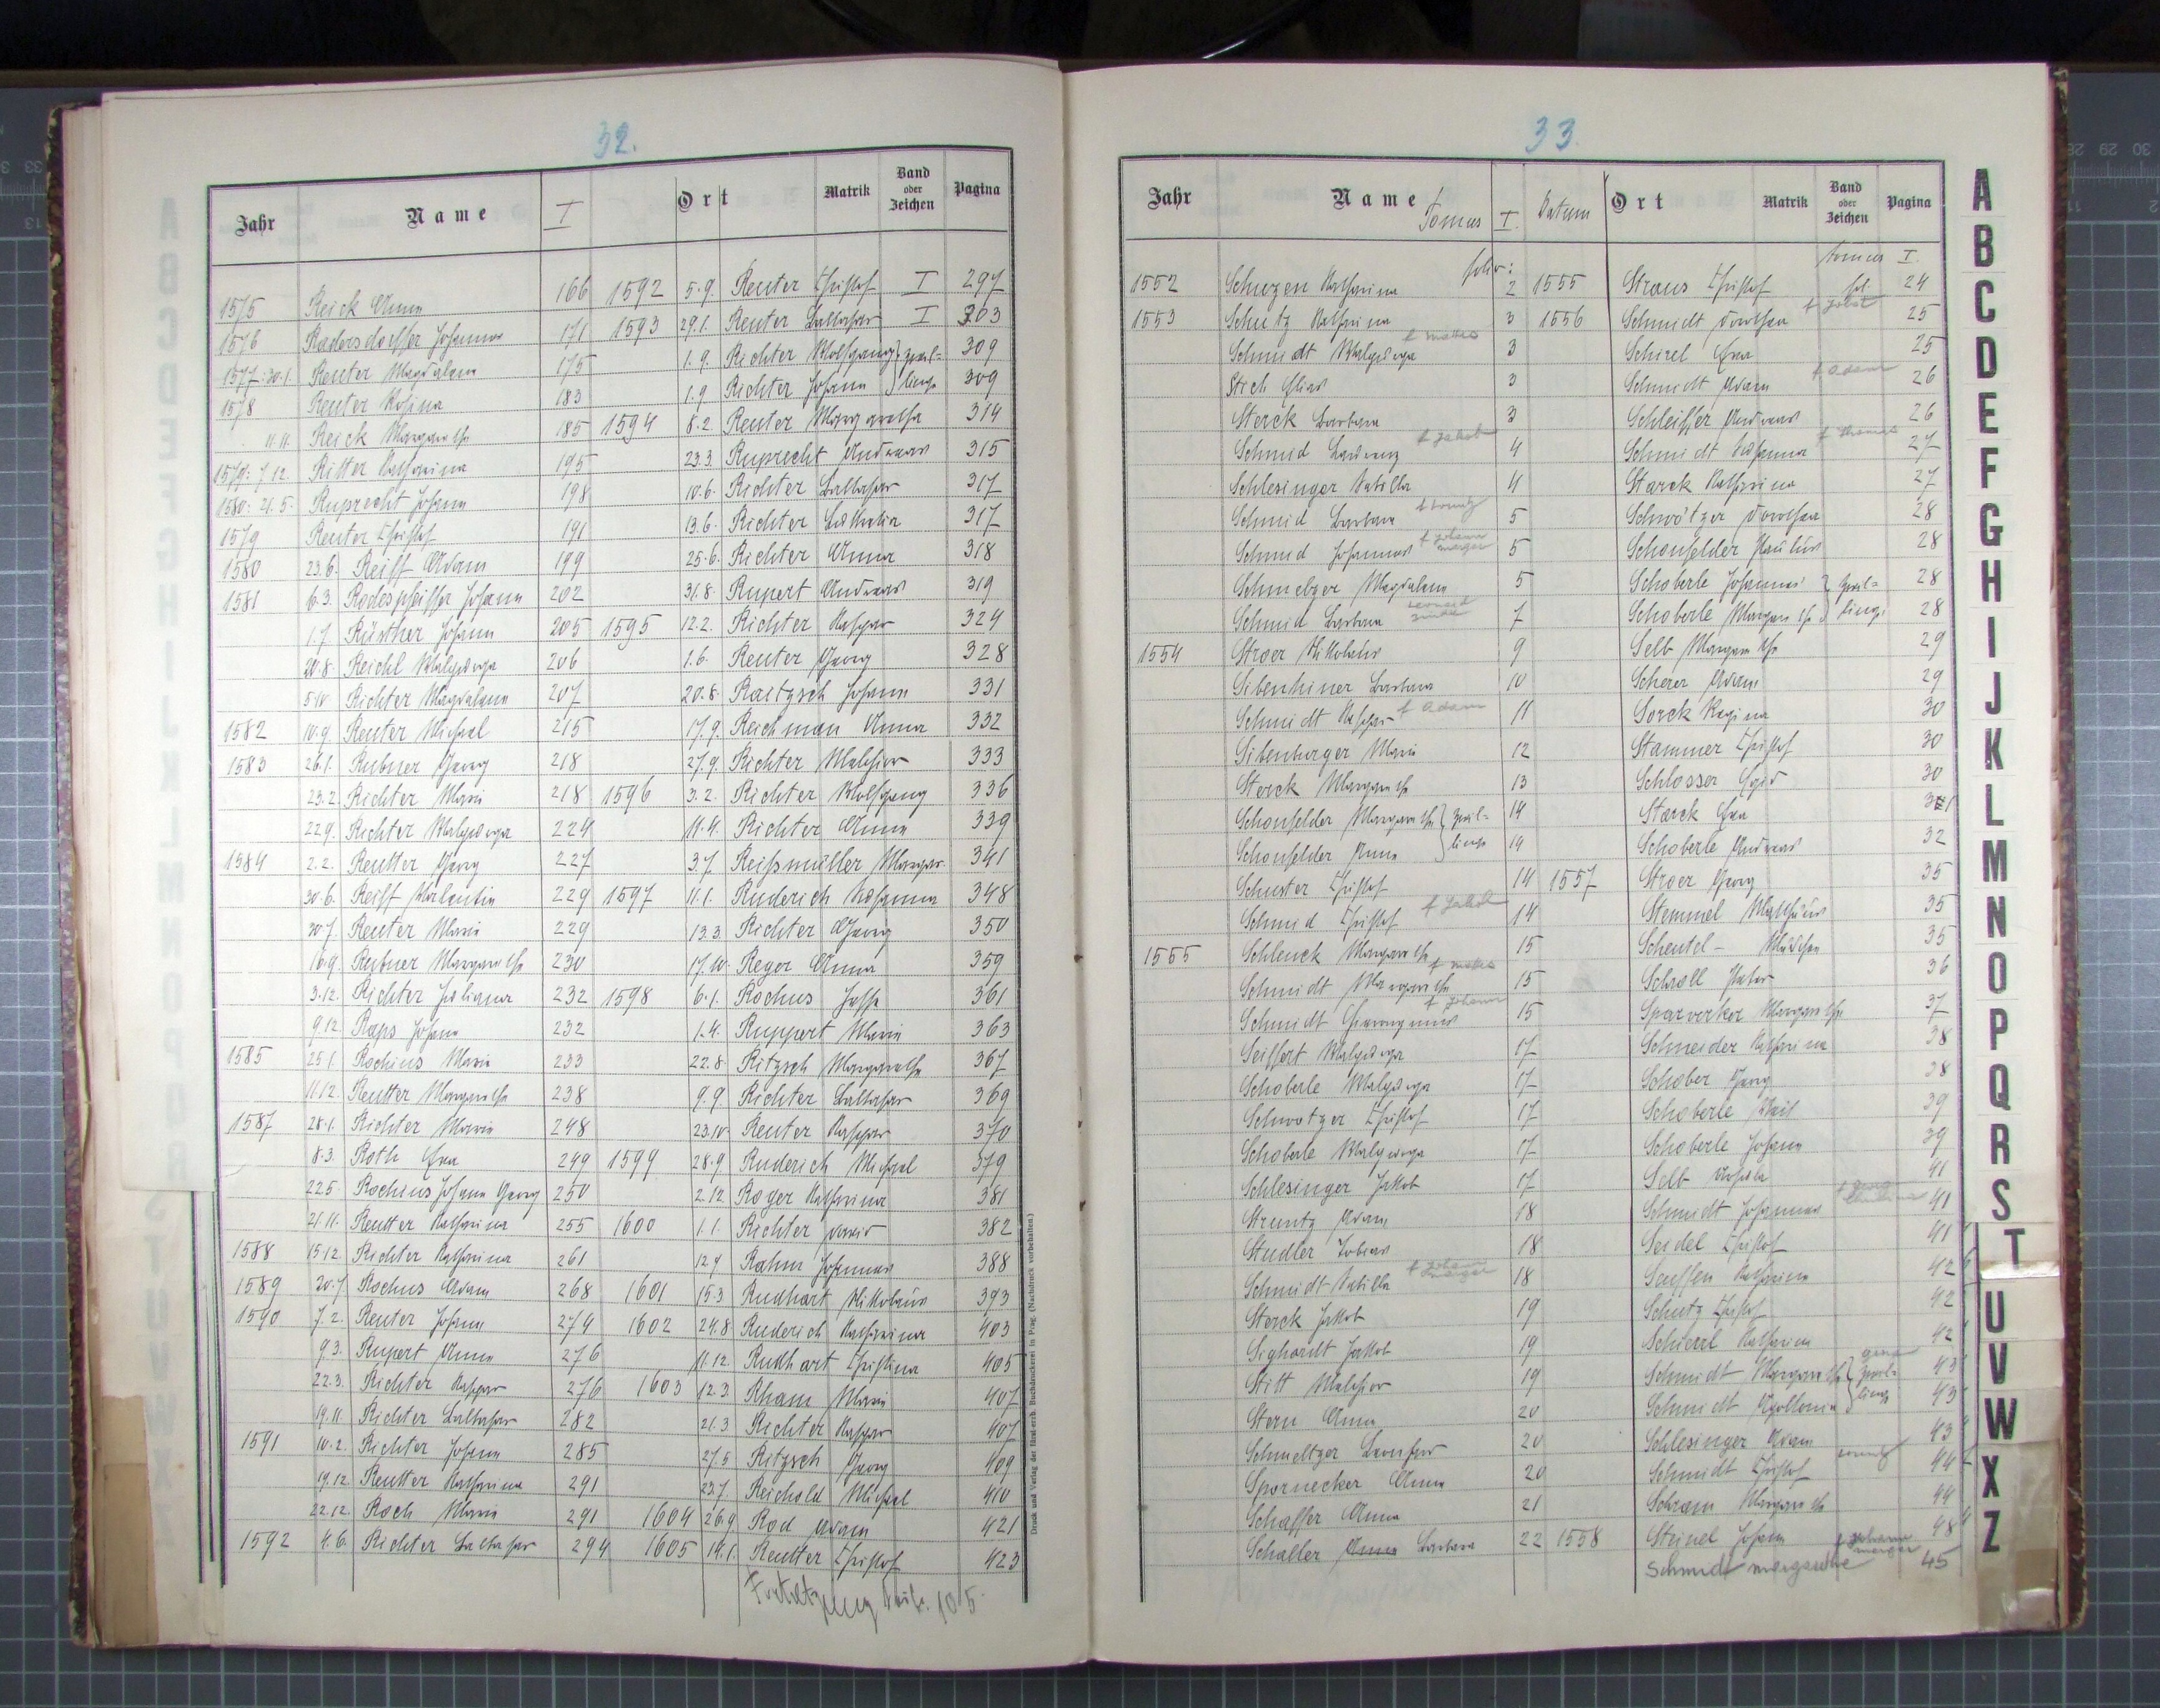 32.
Jahr Name I Ort Matrik Band oder Zeichen Pagina
1575 Reick Anna 166
1576 Johannes 171
1577: 30.1. Reuter Magdalena 175
1578 Reuter Rosina 183
11.11. Reick Margarethe 185
1579: 7.12. Ritter Katharina 195
1580: 21.5. Ruprecht Johann 198
1579 Reuter Christof 191
1580 23.6. Reiff Adam 199
1581 6.3. Johann 202
1.7. Johann 205
20.8. Reichl Walpurga 206
Richter Magdalena 207
1582 10.9. Reuter Michael 215
1583 26.1. Rubner Georg 218
23.2. Richter Marie 218
22.9. Richter Walpurga 224
1584 2.2. Reutter Georg 227
30.6. Reiff Valentin 229
30.7. Reuter Marie 229
16.9. Rubner Margarethe 230
3.12. Richter Juliana 232
9.12. Raps Johann 232
1585 25.1. Rochius Marie 233
11.12. Reutter Margarethe 238
1587 28.1. Richter Marie 248
8.3. Roth Eva 249
22.5. Rochius Johann Georg 250
21.11. Reutter Katharina 255
1588 15.12. Richter Katharina 261
1589 20.7. Rochus Adam 268
1590 7.2. Reuter Johann 274
9.3. Rupert Anna 276
22.3. Richter Kaspar 276
19.11. Richter Balthasar 282
1591 10.2. Richter Johann 285
19.12. Reutter Katharina 291
22.12. Roch Marie 291
1592 4.6. Richter Balthasar 294
1592 5.9. Reuter Christof I 297
1593 29.1. Reuter Balthasar I 303
1.9. Richter Wolfgang } Zwil- 309
1.9. Richter Johann } linge 309
1594 8.2. Reuter Margaretha 314
23.3. Ruprecht Andreas 315
10.6. Richter Balthasar 317
13.6. Richter 317
25.6. Richter Anna 318
31.8. Rupert Andreas 319
1595 12.2. Richter Kaspar 324
1.6. Reuter Georg 328
20.8. Raitzsch Johann 331
17.9. Reichman Anna 332
27.9. Richter Melchior 333
1596 3.2. Richter Wolfgang 336
11.4. Richter Anna 339
3.7. Reißmüller Margar. 341
1597 11.1. Ruderich Susanna 348
13.3. Richter Georg 350
17.10. Reger Anna 359
1598 6.1. Rochus 361
1.4. Ruppert Marie 363
22.8. Ritzsch Margarethe 367
9.9. Richter Balthasar 369
23.10. Reuter Kaspar 370
1599 28.9. Ruderich Michael 379
2.12. Roger Katharina 381
1600 1.1. Richter David 382
12.9. Rahm Johannes 388
1601 15.3. Rudhart Nikolaus 393
1602 24.8. Ruderich Katharina 403
11.12. Rudhart Christina 405
1603 12.3. Rham Marie 407
21.3. Richter Kaspar 407
27.5. Ritzsch Georg 409
23.7. Reichold Michael 410
1604 26.9. Rod Adam 421
1605 14.1. Reutter Christof 423
Fortsetzung Seite 105.
Druck und Verlag der fürst-erzb. Buchdruckerei in Prag. (Nachdruck vorbehalten.)
33.
Jahr Name Tomus I. Datum Ort Matrik Band oder Zeichen Pagina
folio: tomus I.
1552 Katharina 2
1553 Schutz Katharina 3
Schmidt Walpurga 3
Stich Elias 3
Sterck Barbara 3
Schmid Laurenz f Jakob 4
Schlesinger Sabilla 4
Schmid Barbara 5
Schmid Johannes f Johann merger 5
Magdalena 5
Schmid Barbara 7
1554 Stroer Nikolaus 9
Sibenhiner Barbara 10
Schmidt Kaspar f Adam 11
Sibenburger Marie 12
Sterck Margarethe 13
Schonfelder Margarethe } Zwil- 14
Schonfelder Anna } linge 14
Schuster Christof 14
Schmid Christof f Jakob 14
1555 Schlenck Margarethe 15
Schmidt Margarethe 15
Schmidt f Johann 15
Seiffert Walpurga 17
Schoberle Walpurga 17
Schwotzer Christof 17
Schoberle Walpurga 17
Schlesinger Jakob 17
Struntz Adam 18
Studler Tobias 18
Schmidt Sabilla f Johann merger 18
Sterck Jakob 19
Sighardt Jakob 19
Stitt Melchior 19
Stern Anna 20
Schmeltzer 20
Spornecker Anna 20
Schaffer Anna 21
Schaller Barbara 22
1555 Straus Christof fol. 24
1556 Schmidt Dorothea f Jobst 25
Schirel Eva 25
Schmidt Adam f Adam 26
Schleiffer Andreas 26
Schmidt Susanna f Thomas 27
Starck Katharina 27
Schwötzer Dorothea 28
Schonfelder Paulus 28
Schoberle Johannes } Zwil- 28
Schoberle Margarethe } linge 28
Selb Margarethe 29
Scherer Adam 29
Sorck Regina 30
Stammer Christof 30
Schlosser Egid 30
Starck Eva 31
Schoberle Andreas 32
1557 Stroer Georg 35
Stemmel Matthäus 35
Scheutel 35
Schroll Peter 36
Sparverker Margarethe 37
Schneider Katharina 38
Schober Georg 38
Schoberle Veit 39
Schoberle Johann 39
Selb Ursula 41
Schmidt Johannes 41
Seidel Christof 41
Katharina 42
Schutz Christof 42
Katharina 42
Schmidt Margarethe } Zwil- 43
Schmidt Apollonia } linge 43
Schlesinger Adam 43
Schmidt Christof 44
Schram Margarethe 44
1558 Steinel Johann 48
Schmidt margarethe f Johann merger 45
A
B
C
D
E
F
G
H
I
J
K
L
M
N
O
P
Q
R
S
T
U
V
W
X
Z